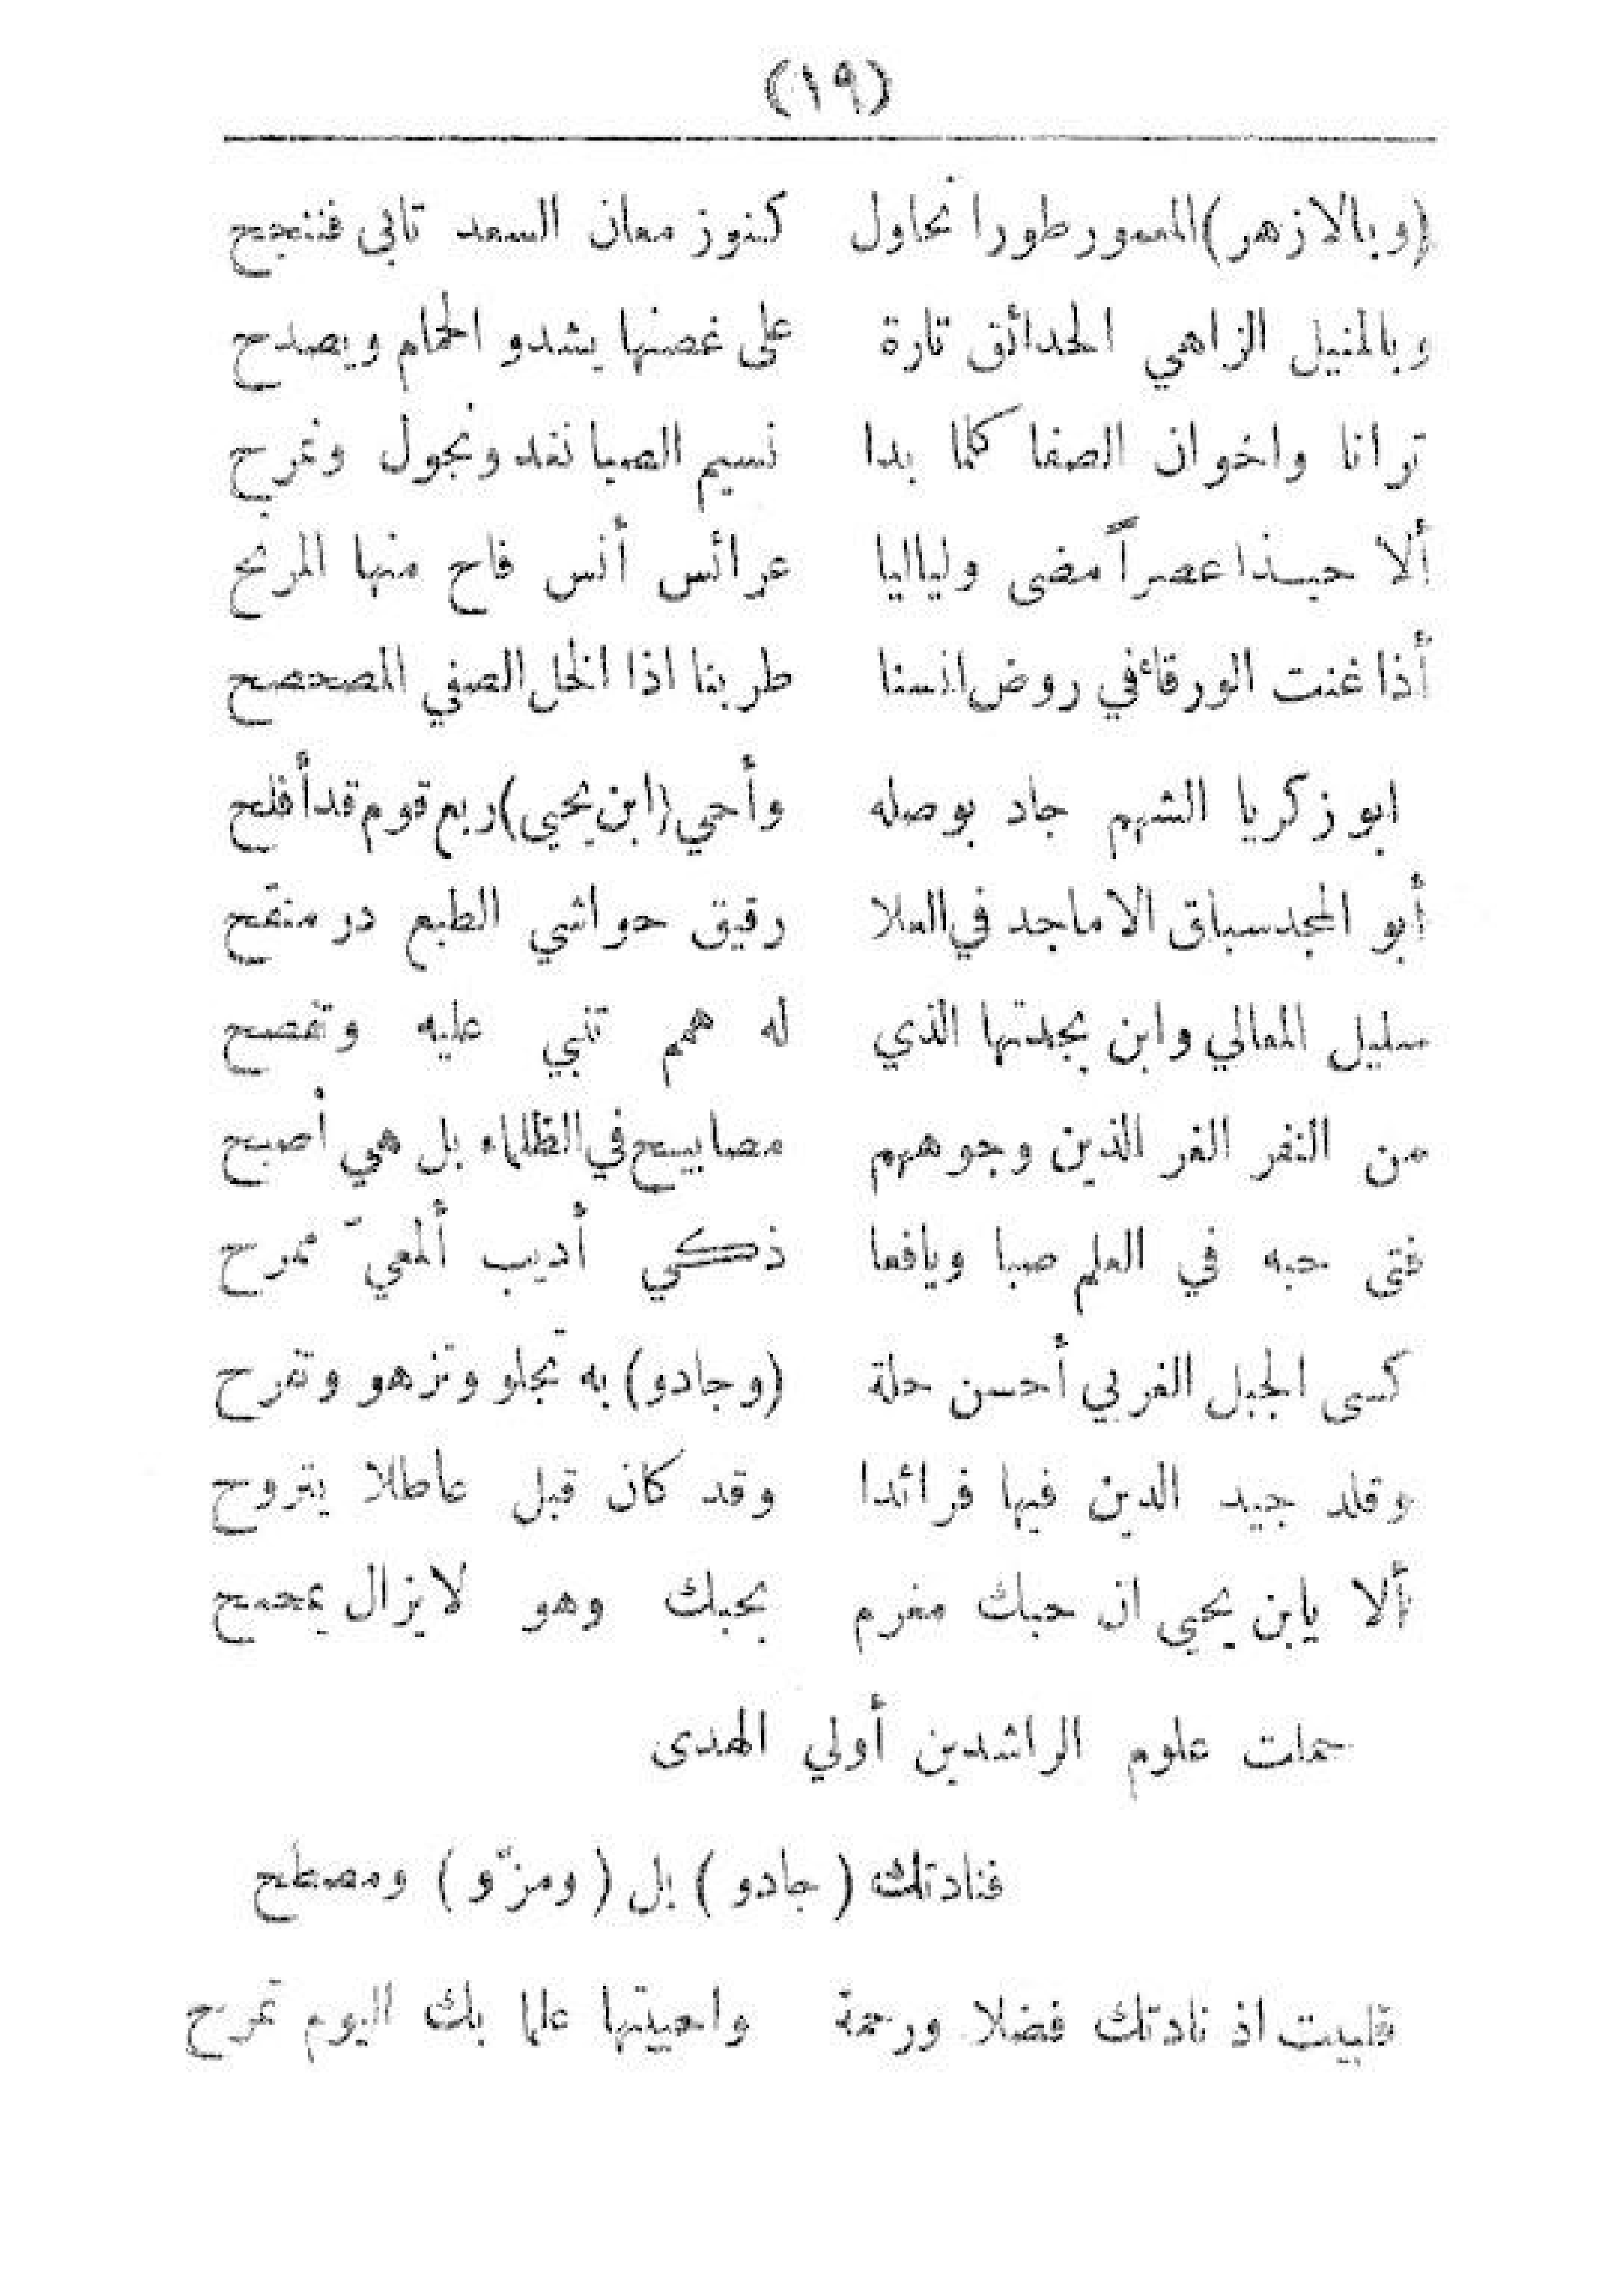 (١٩)
(وبالازهر) المعمور طورا نحاول كنوز معان السعد تابى فنتجح
وبالمنيل الزاهي الحدائق تارة على غصنها يشدو الحمام ويصدح
ترانا واخوان الصفا كلما بدا نسيم الصبا نغد ونجول ونمرح
ألا حبذا عصراً مضى ولياليا عرائس أنس فاح منها المرنح
أذا غنت الورقاء في روض انسنا طربنا اذا الخل الصفي المصحصح
ابو زكريا الشهم جاد بوصله وأحي (ابن يحيى) ربع قوم قد أفلح
أبو المجد سباق الاماجد في العلا رقيق حواشي الطبع در منقح
سليل المعالي وابن بجدتها الذي له همم تنبي عليه وتفصح
من النفر الغر الذين وجوههم مصابيح في الظلماء بل هي أصبح
فتى حبه في العلم صبا ويافعا ذكي أديب ألمعيّ ممرح
كسى الجبل الغربي أحسن حلة (وجادو) به تجلو وتزهو وتفرح
وقلد جيد الدين فيها فرائدا وقد كان قبل عاطلا يتروح
ألا يابن يحيى ان حبك مغرم بحبك وهو لايزال
حملت علوم الراشدين أولي الهدى
فنادتك (جادو) بل (ومزّو) ومصطح
فلبيت اذ نادتك فضلا ورحمة واحييتها علما بك اليوم تمرح